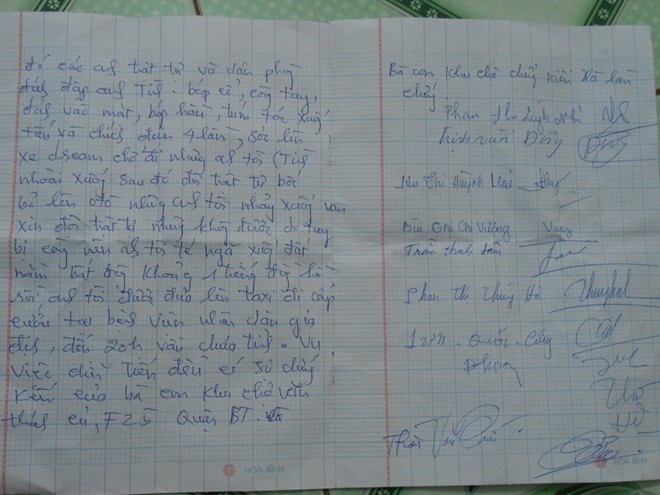 đó các as trật tự và dân phòng
đánh đập anh Tú : bóp cổ, còng tay,
đánh vào mặt, bóp hầu, túm tóc xuống
tấn và chích điện 4 lần, sốc lên
xe dream chở đi nhưng as tôi (Tú
nhoài xuống sau đó đội trật tự bắt
bỏ lên ôtô nhưng as tôi nhảy xuống van
xin đội trật tự nhưng không được do tay
bị còng nên as tôi té ngã xuống đất
nằm bất động khoảng 1 tiếng đồng hồ
rồi as tôi được đưa lên taxi đi cấp
cứu tại bệnh viện nhân dân gia
định, đến 20h vẫn chưa tỉnh. Vụ
việc diễn tiến đều có sự chứng
kiến của bà con khu chợ văn
thánh cũ, F25 Quận BT.
Bà con khu chợ chứng kiến đã làm
chứng
Phan Thị Quỳnh Như
Trịnh xuân Dũng
Thị Huỳnh Mai
Bùi Thị Chi Vương
Trần thanh tâm
Phan Thị Thúy Hà
Quốc Cường
HOA BINH
HOA BINH